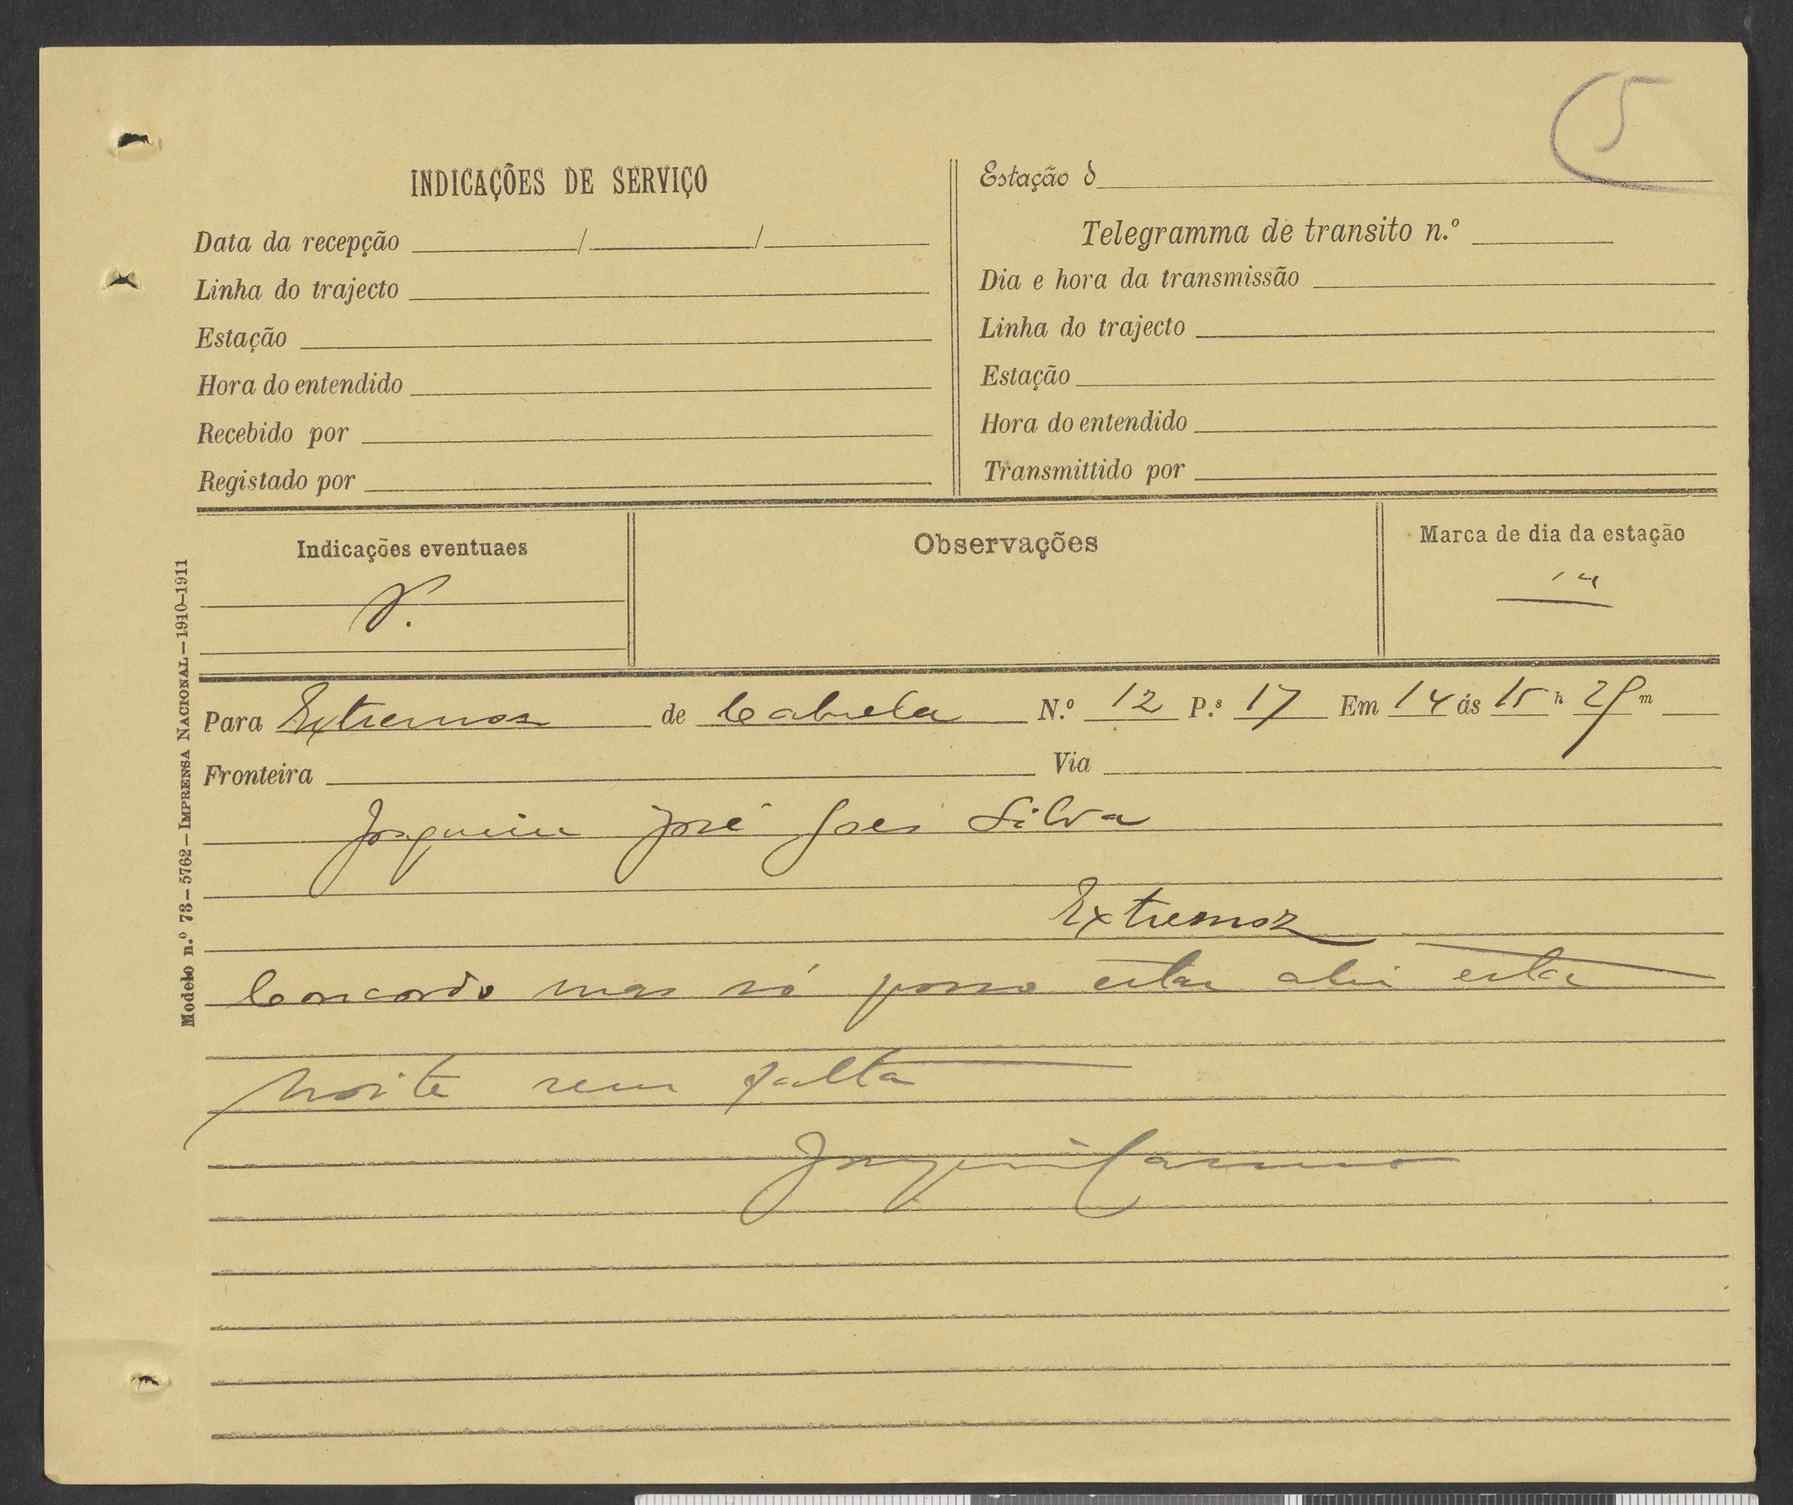 5
INDICAÇÕES DE SERVIÇO
Data da recepção / /
Linha do trajecto
Estação
Hora do entendido
Recebido por
Registado por
Estação d
Telegramma de transito n.º
Dia e hora da transmissão
Linha do trajecto
Estação
Hora do entendido
Transmittido por
Indicações eventuaes
Observações
Marca de dia da estação
Modelo n.º 73—5762—IMPRENSA NACIONAL—1910-1911
Para Extremoz de Cabrela N.º 12 P.s 17 Em 14 ás 15 h m
Fronteira Via
Joaquim José Silva
Extremoz
Concordo mas só posso estar ahi esta
Noite sem falta
Joaquim